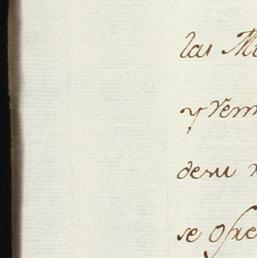 las M
y Vem
desu
se ofre